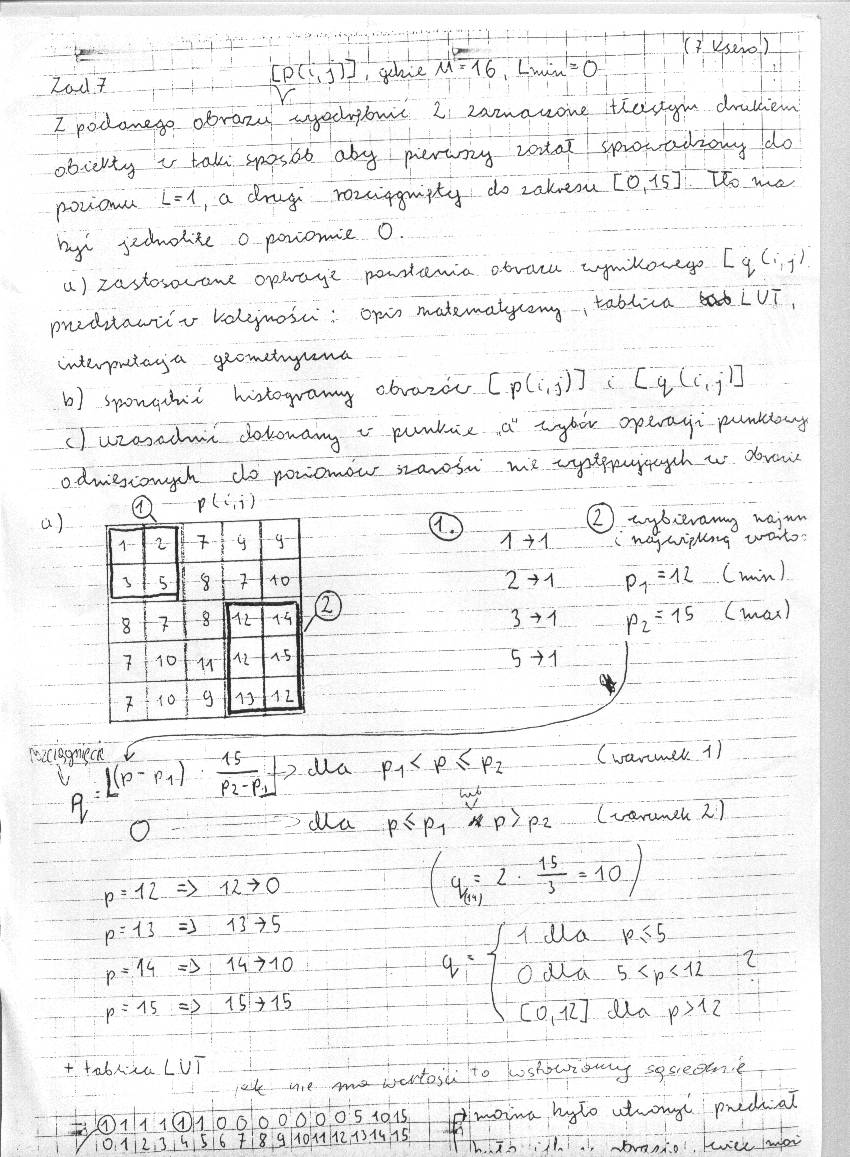 (7 Ksero)
Zad.7 [p(i,j)], gdzie M=16, Lmin=0
Z podanego obrazu wyodrębnić 2 zaznaczone tłustym drukiem
obiekty w taki sposób aby pierwszy został sprowadzony do
poziomu L=1, a drugi rozciągnięty do zakresu [0,15]. Tło ma
być jednolite o poziomie 0.
a) zastosowane operacje powstania obrazu wynikowego [q(i,j)
przedstawić w kolejności: opis matematyczny, tablica LUT,
interpretacja geometryczna
b) sporządzić histogramy obrazów [p(i,j)] i [q(i,j)]
c) uzasadnić dokonany w punkcie "a" wybór operacji punktowy
odniesionych do poziomów szarości nie występujących w obrazie
a) 1 p(i,j) 1. 2 wybieramy najmn
i największą warto
1 2 7 9 9 1→1
3 5 8 7 10 2→1 p₁=12 (min)
8 7 8 12 14 2 3→1 p₂=15 (max)
7 10 11 12 15 5→1
7 10 9 13 12
rozciągnięcie
q = ⌊(p-p₁) · 15/(p₂-p₁)⌋ → dla p₁<p≤p₂ (warunek 1)
lub
0 → dla p≤p₁ p>p₂ (warunek 2)
p=12 => 12→0 (q₍₁₄₎= 2 · 15/3 = 10)
p=13 => 13→5
p=14 => 14→10
p=15 => 15→15
q = { 1 dla p≤5
0 dla 5<p<12 ?
[0,12] dla p>12
+ tablica LUT
jak nie ma wartości to wstawiamy sąsiednie
1 1 1 1 1 1 0 0 0 0 0 0 0 5 10 15
0 1 2 3 4 5 6 7 8 9 10 11 12 13 14 15
można było utworzyć przedział